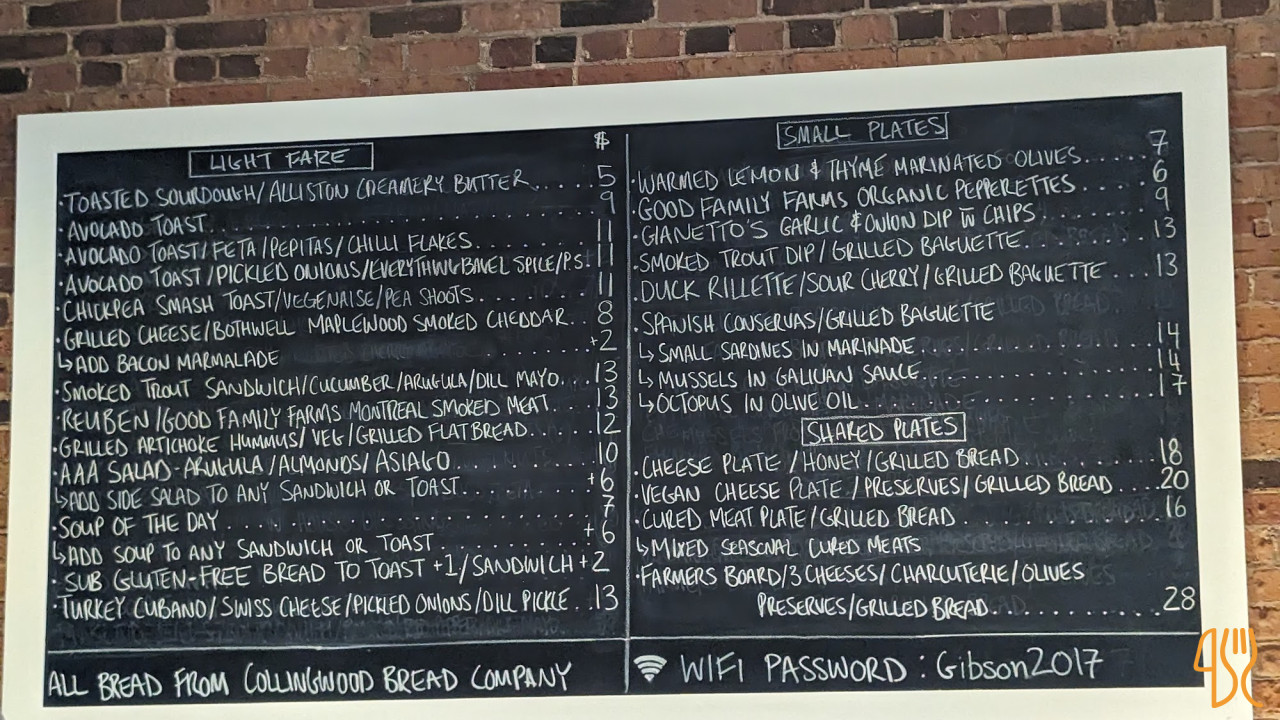 LIGHT FARE
$
·TOASTED SOURDOUGH/ALLISTON CREAMERY BUTTER.....5
·AVOCADO TOAST..........9
·AVOCADO TOAST/FETA/PEPITAS/CHILLI FLAKES..........11
·AVOCADO TOAST/PICKLED ONIONS/EVERYTHINGBAGEL SPICE/P.S.11
·CHICKPEA SMASH TOAST/VEGENAISE/PEA SHOOTS........11
·GRILLED CHEESE/BOTHWELL MAPLEWOOD SMOKED CHEDDAR..8
↳ADD BACON MARMALADE ......+2
·SMOKED TROUT SANDWICH/CUCUMBER/ARUGULA/DILL MAYO...13
·REUBEN/GOOD FAMILY FARMS MONTREAL SMOKED MEAT...13
·GRILLED ARTICHOKE HUMMUS/VEG/GRILLED FLATBREAD.....12
·AAA SALAD-ARUGULA/ALMONDS/ASIAGO..........10
↳ADD SIDE SALAD TO ANY SANDWICH OR TOAST.........+6
·SOUP OF THE DAY..........7
↳ADD SOUP TO ANY SANDWICH OR TOAST..........+6
·SUB GLUTEN-FREE BREAD TO TOAST +1/SANDWICH +2
·TURKEY CUBANO/SWISS CHEESE/PICKLED ONIONS/DILL PICKLE..13
ALL BREAD FROM COLLINGWOOD BREAD COMPANY
SMALL PLATES
·WARMED LEMON & THYME MARINATED OLIVES.....7
·GOOD FAMILY FARMS ORGANIC PEPPERETTES.....6
·GIANETTO'S GARLIC & ONION DIP W CHIPS.......9
·SMOKED TROUT DIP/GRILLED BAGUETTE........13
·DUCK RILLETTE/SOUR CHERRY/GRILLED BAGUETTE...13
·SPANISH CONSERVAS/GRILLED BAGUETTE
↳SMALL SARDINES IN MARINADE..........14
↳MUSSELS IN GALICIAN SAUCE..........14
↳OCTOPUS IN OLIVE OIL..........17
SHARED PLATES
·CHEESE PLATE/HONEY/GRILLED BREAD..........18
·VEGAN CHEESE PLATE/PRESERVES/GRILLED BREAD....20
·CURED MEAT PLATE/GRILLED BREAD..........16
↳MIXED SEASONAL CURED MEATS
·FARMERS BOARD/3 CHEESES/CHARCUTERIE/OLIVES
PRESERVES/GRILLED BREAD..........28
WIFI PASSWORD : Gibson2017